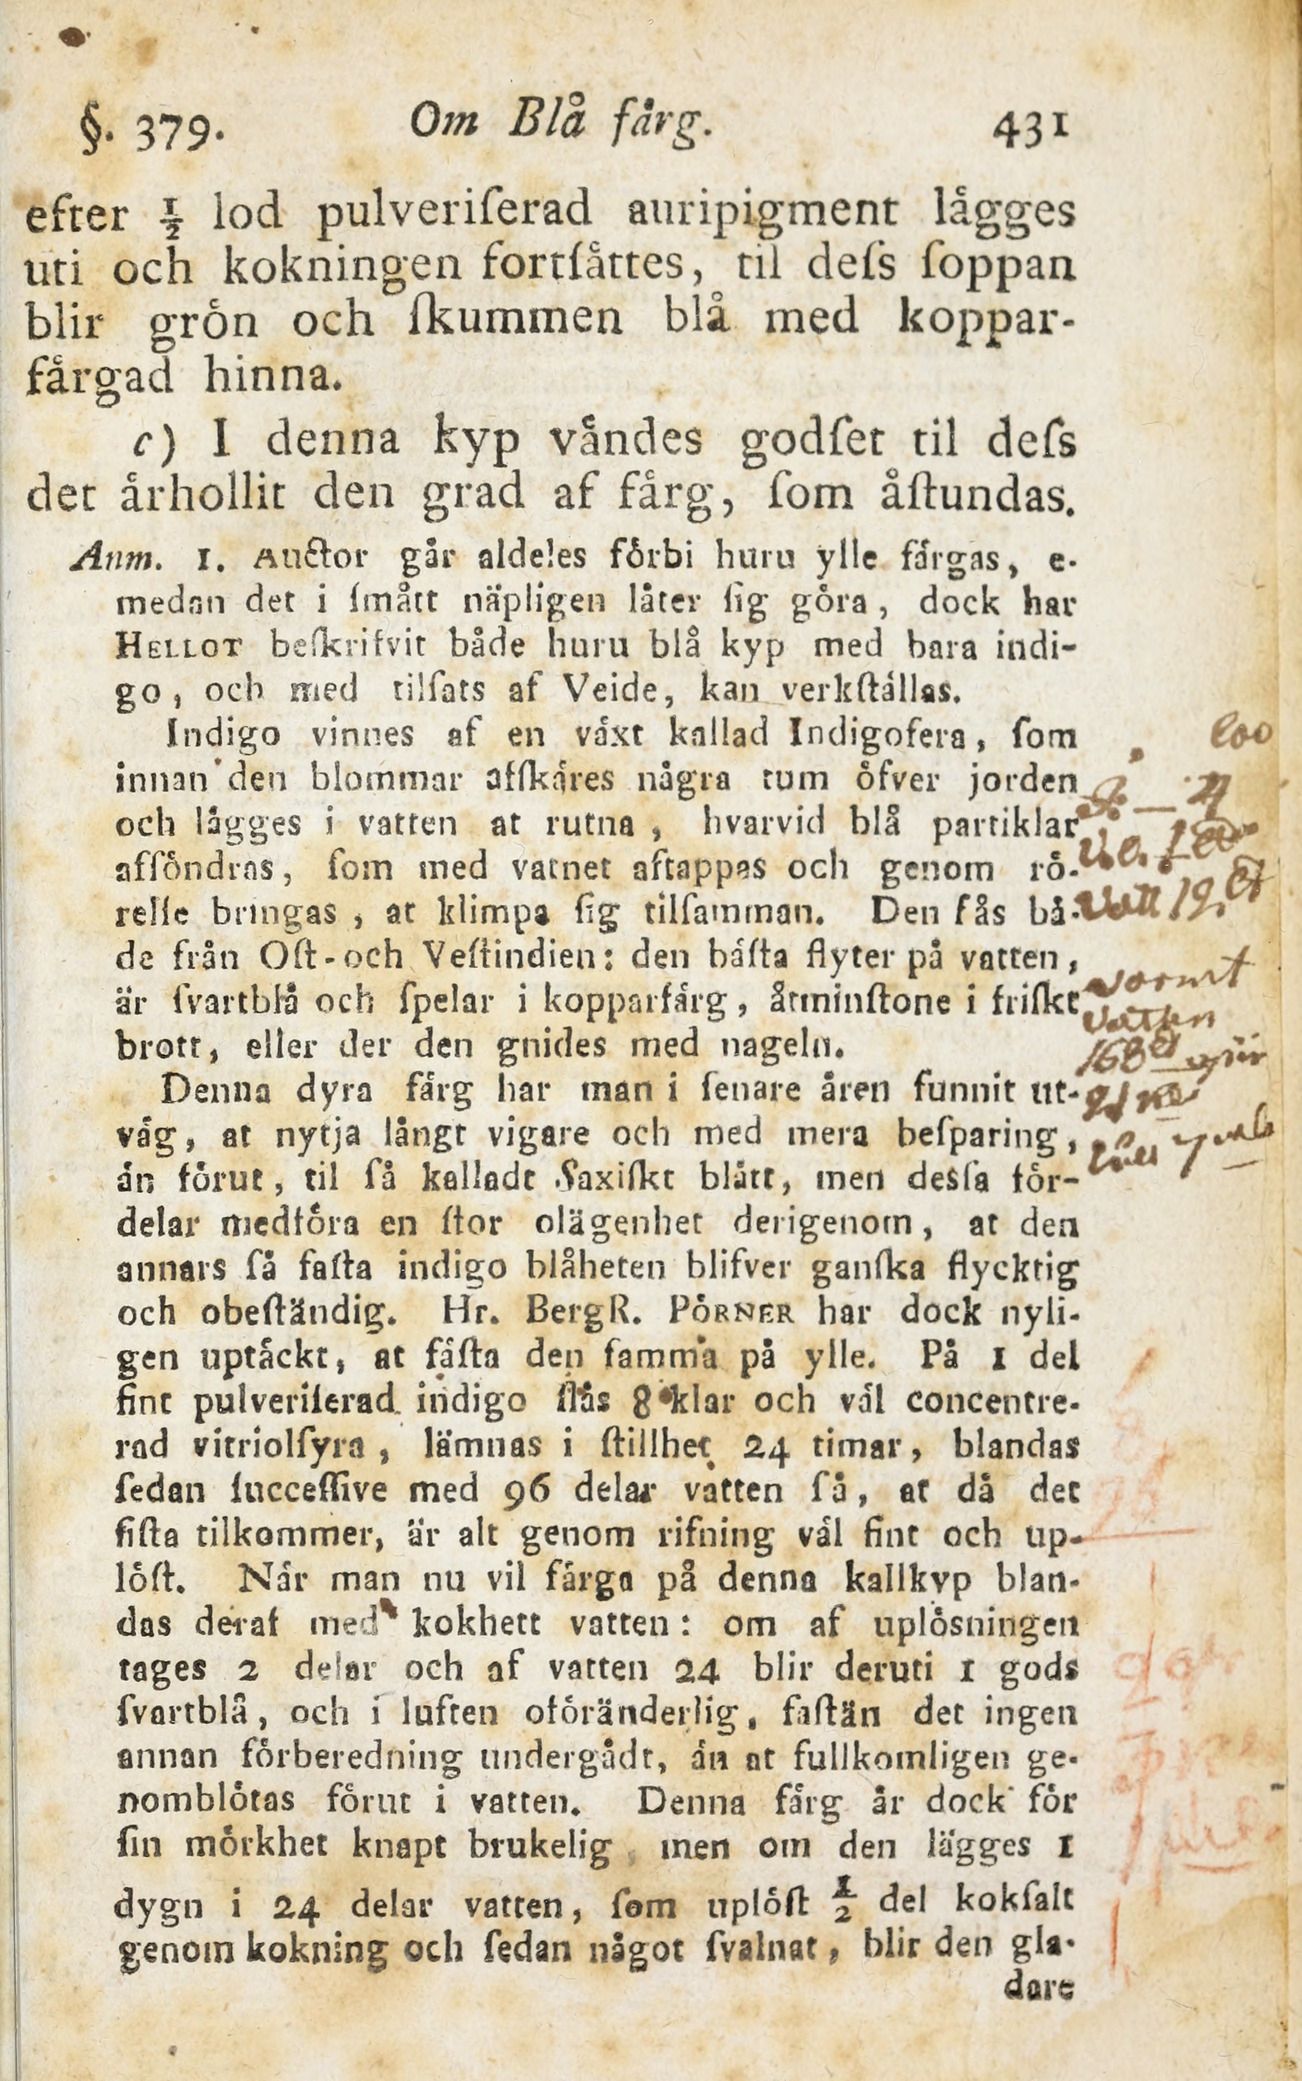 §. 379. Om Blå fårg. 431
efter ½ lod pulveriſerad auripigment lågges
uti och kokningen fortſåttes, til deſs ſoppan
blir grön och ſkummen blå med koppar-
fårgad hinna.
c) I denna kyp våndes godſet til deſs
det århollit den grad af fårg, ſom åſtundas.
Anm. 1. Auctor går aldeles förbi huru ylle fárgas, e-
medan det i ſmått näpligen låter ſig göra, dock har
HELLOT beſkrifvit både huru blå kyp med bara indi-
go, och med tilſats af Veide, kan verkſtállas.
Indigo vinnes af en våxt kallad Indigofera, ſom
innan den blommar afſkáres några tum öfver jorden
och lågges i vatten at rutna, hvarvid blå partiklar
afföndras, ſom med vatnet aftappas och genom rö-
relſe bringas, at klimpa ſig tilſamman. Den fås bå-
de från Oſt- och Veſtindien: den báſta flyter på vatten,
är ſvartblå och ſpelar i kopparfárg, åtminſtone i friſkt
brott, eller der den gnides med nageln.
Denna dyra fárg har man i ſenare åren funnit ut-
våg, at nytja långt vigare och med mera beſparing,
án förut, til ſå kalladt Saxiſkt blått, men desſa för-
delar medföra en ſtor olägenhet derigenom, at den
annars ſå faſta indigo blåheten blifver ganſka flycktig
och obeſtändig. Hr. BergR. PÖRNER har dock nyli-
gen uptåckt, at fáſta den ſamma på ylle. På 1 del
fint pulveriſerad indigo ſlås 8 klar och vál concentre-
rad vitriolſyra, lämnas i ſtillhet 24 timar, blandas
ſedan ſucceſſive med 96 delar vatten ſå, at då det
ſiſta tilkommer, är alt genom rifning vál fint och up-
löſt. Når man nu vil fárga på denna kallkyp blan-
das deraf med kokhett vatten: om af uplösningen
tages 2 delar och af vatten 24 blir deruti 1 gods
ſvartblå, och i luften oföränderlig, faſtän det ingen
annan förberedning undergådt, án at fullkomligen ge-
nomblötas förut i vatten. Denna fárg år dock för
ſin mörkhet knapt brukelig, men om den lägges 1
dygn i 24 delar vatten, ſom uplöſt ½ del kokſalt
genom kokning och ſedan något ſvalnat, blir den gla-
dare
vormt
vatten